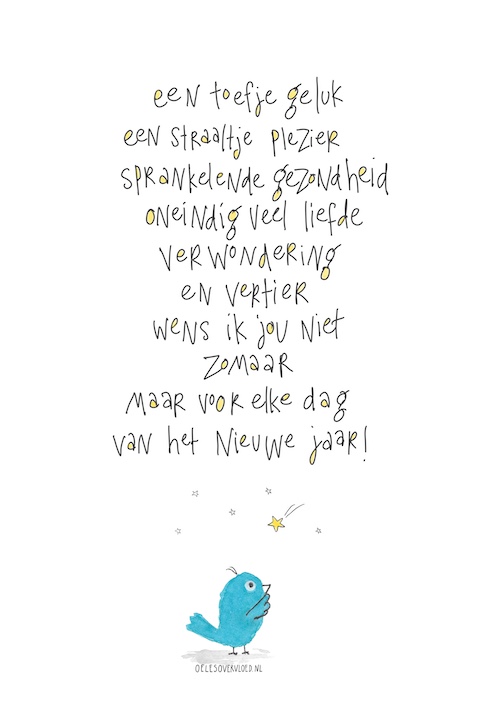 een toefje geluk
een straaltje plezier
sprankelende gezondheid
oneindig veel liefde
verwondering
en vertier
wens ik jou niet
zomaar
maar voor elke dag
van het nieuwe jaar!
OELESOVERVLOED.NL